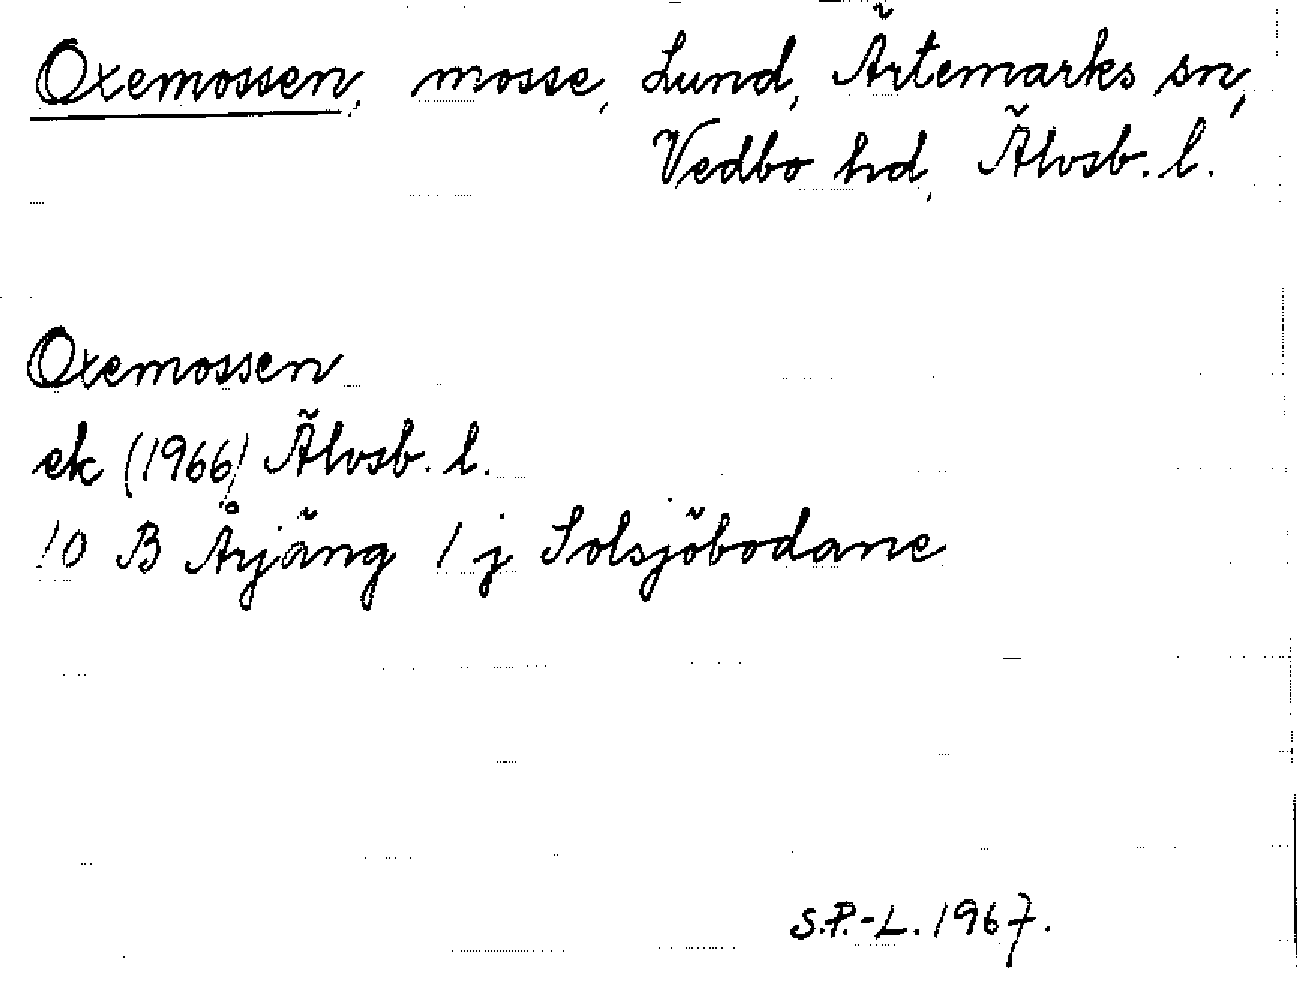 Oxemossen, mosse, Lund, Ärtemarks sn,
Vedbo hd, Älvsb. l.
Oxemossen
ek (1966) Älvsb. l.
10 B Årjäng 1 j Solsjöbodane
S.P.-L. 1967.